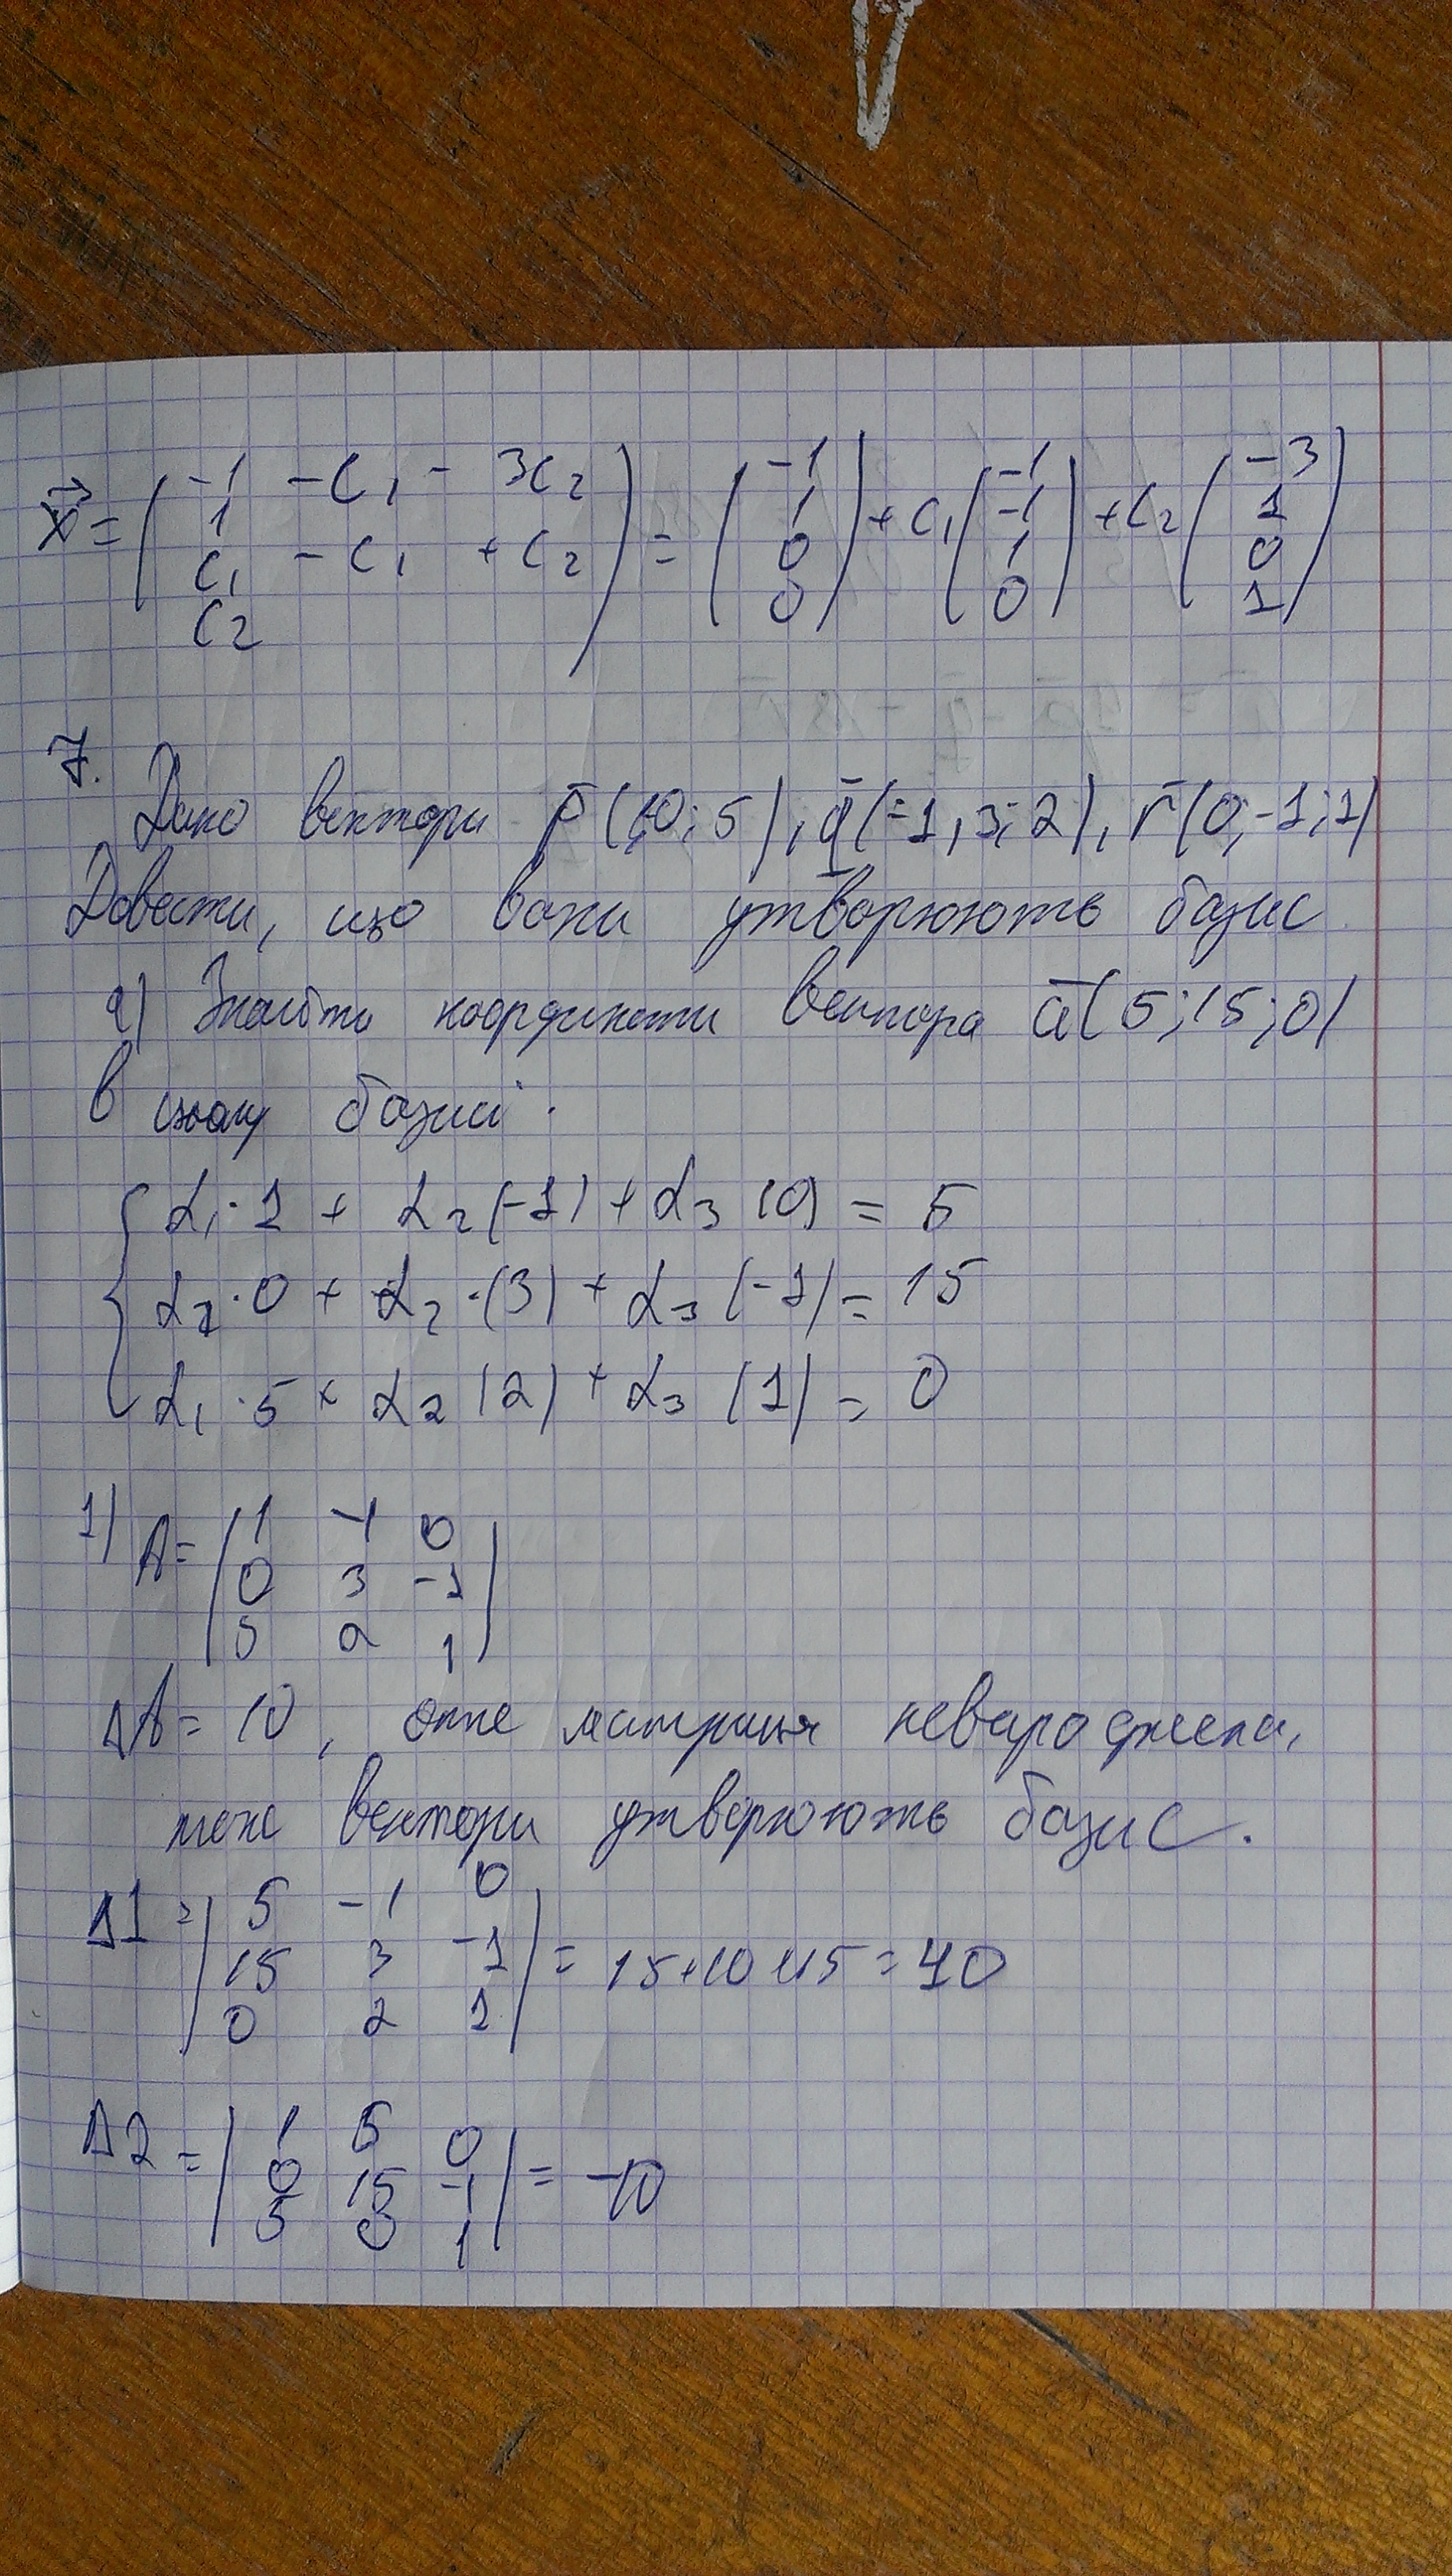 x⃗ = ( -1 -C₁ - 3C₂ ) = ( -1 ) + C₁ ( -1 ) + C₂ ( -3 )
1 - C₁ + C₂ 1 -1 1
C₁ 0 1 0
C₂ 0 0 1
7.
Дано вектори p̄ (1;0;5), q̄ (-1, 3; 2), r̄ (0; -1; 1)
Довести, що вони утворюють базис
а) Знайти координати вектора ā (5; 15; 0)
в цьому базисі.
α₁ · 1 + α₂ (-1) + α₃ (0) = 5
α₁ · 0 + α₂ · (3) + α₃ (-1) = 15
α₁ · 5 + α₂ (2) + α₃ (1) = 0
1) A = | 1 -1 0 |
0 3 -1
5 2 1
ΔA = 10, отже матриця невироджена,
тоже вектори утворюють базис.
Δ1 = | 5 -1 0 |
15 3 -1 = 15+10+15 = 40
0 2 1
Δ2 = | 1 5 0 |
0 15 -1 = -10
5 0 1